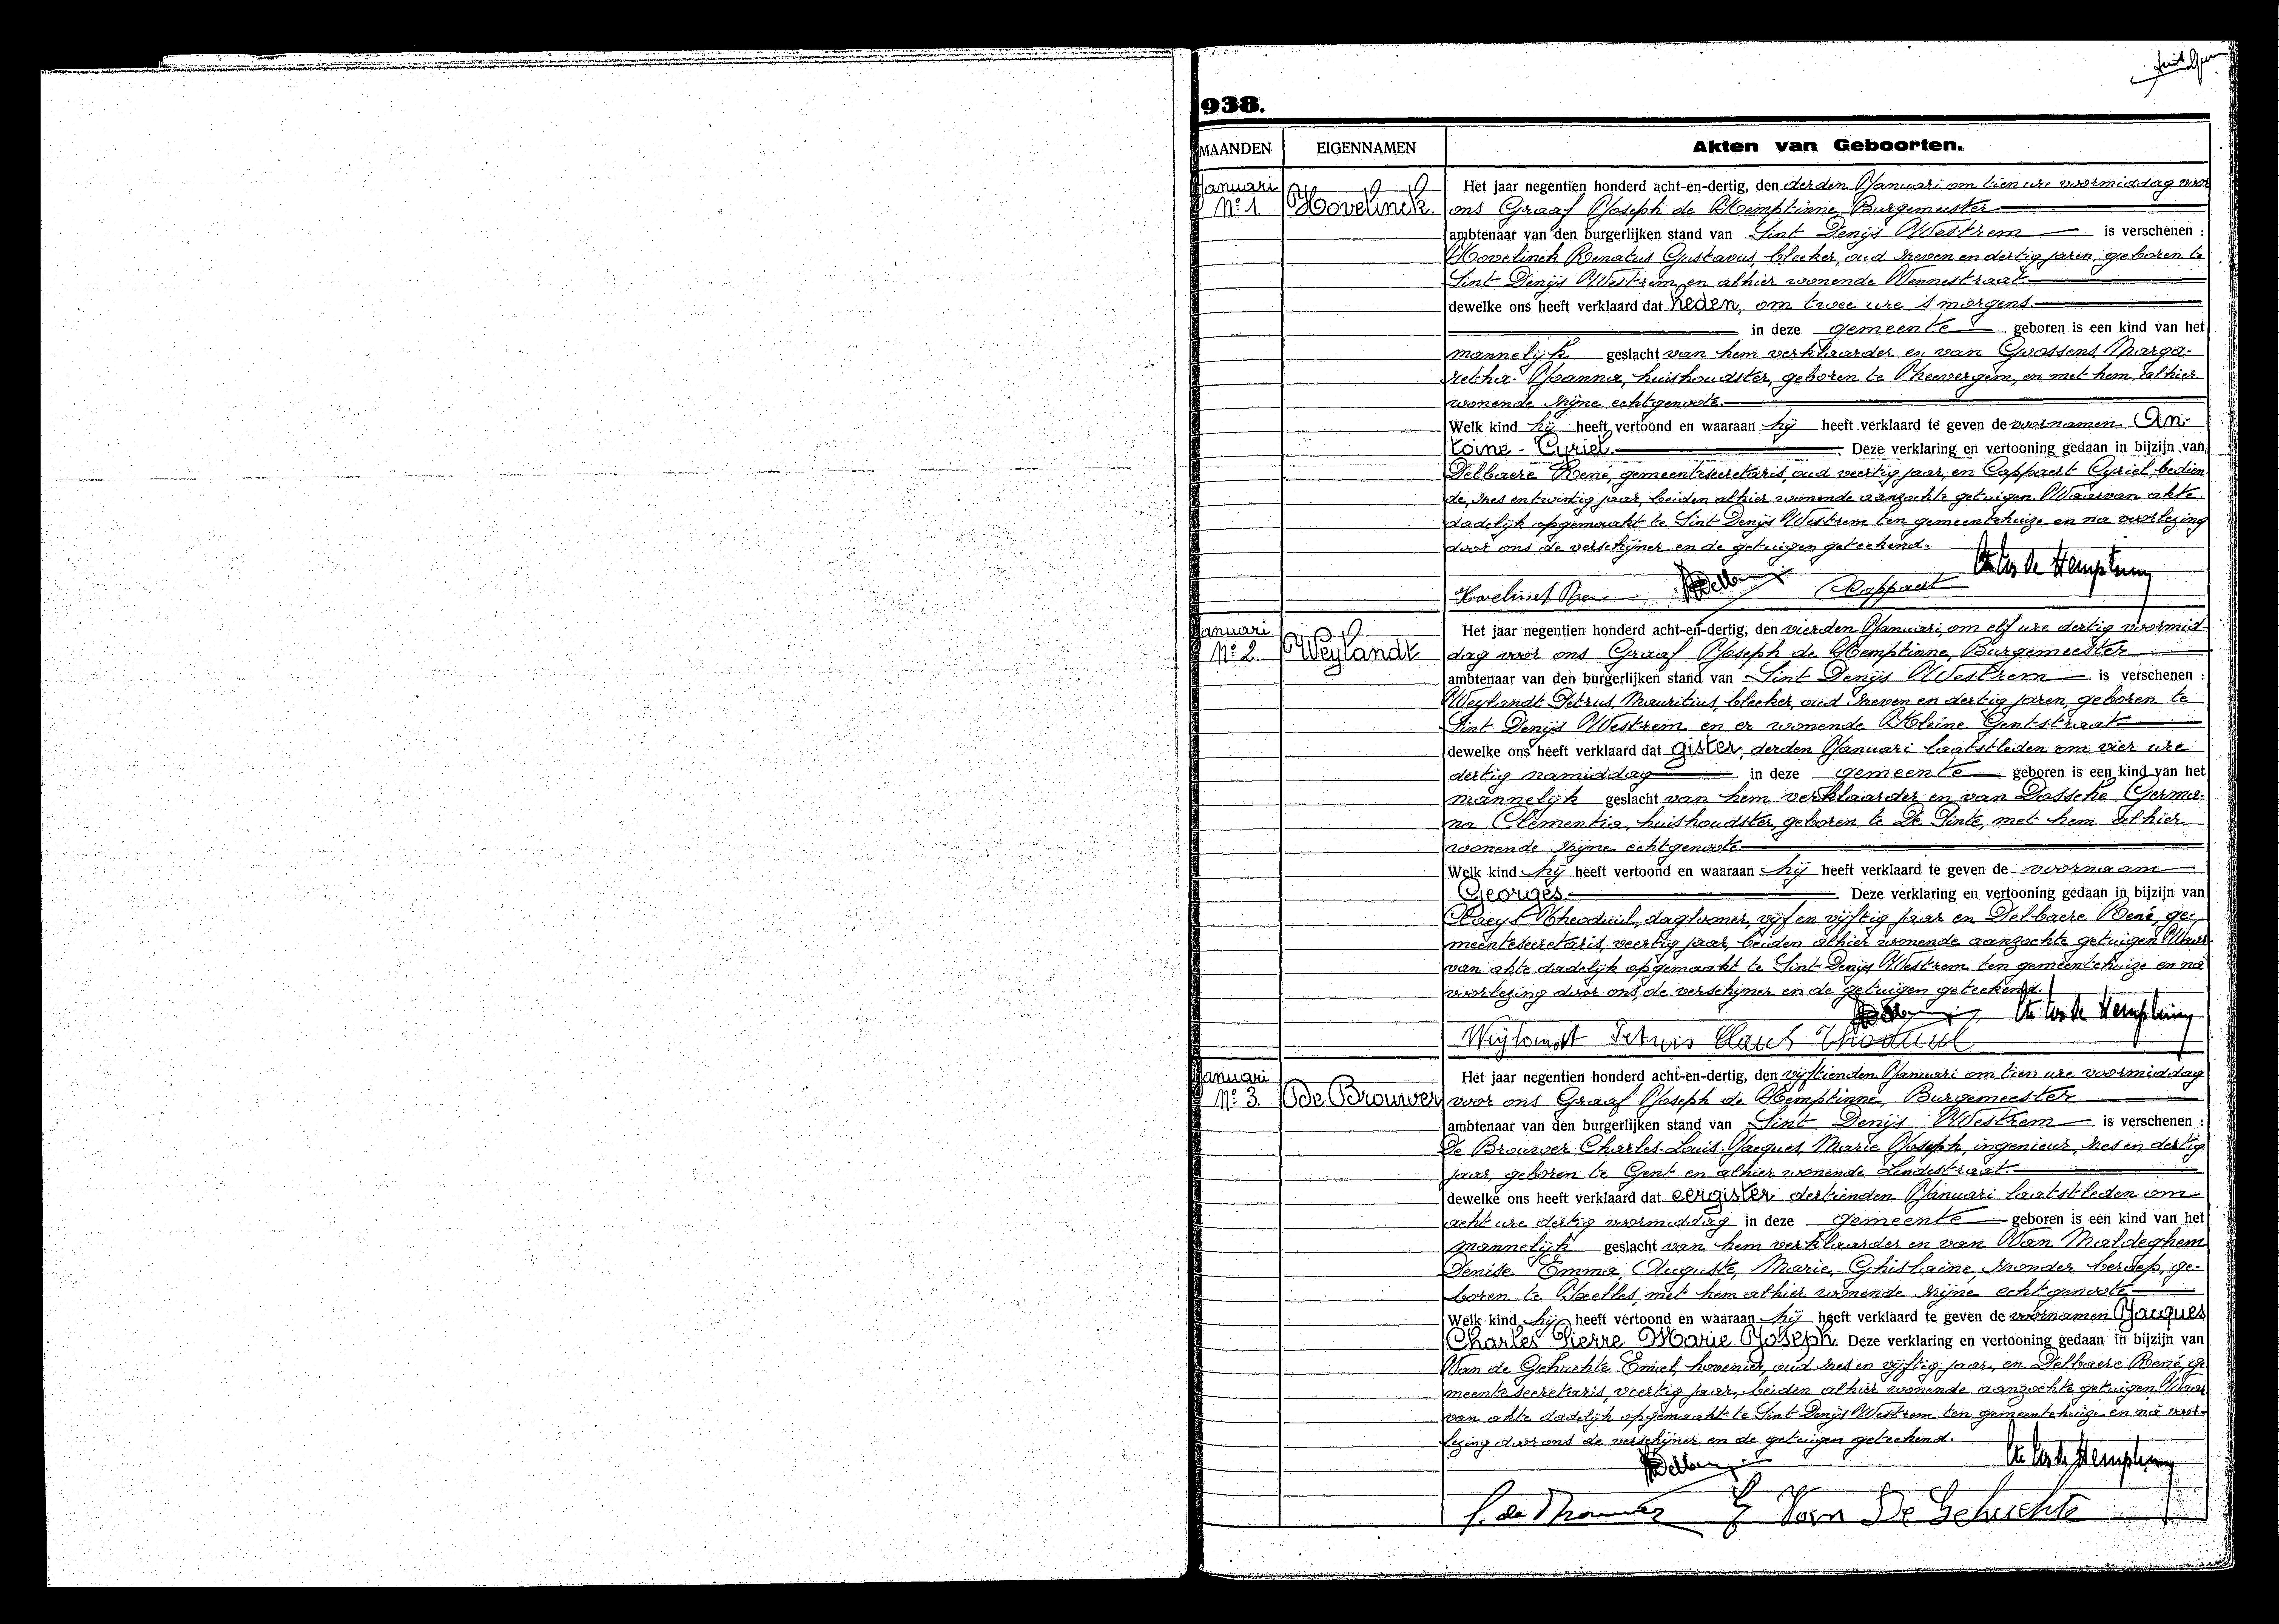 938.
MAANDEN EIGENNAMEN Akten van Geboorten.
Januari
Nº 1. Hovelinck.
Het jaar negentien honderd acht-en-dertig, den derden Januari om tien ure voormiddag voor
ons Graaf Joseph de Hemptinne, Burgemeester
ambtenaar van den burgerlijken stand van Sint Denijs Westrem is verschenen :
Hovelinck Renatus Gustavus, bleeker, oud zeven en dertig jaren, geboren te
Sint Denijs Westrem en alhier wonende Vennestraat.
dewelke ons heeft verklaard dat heden, om twee ure 's morgens.
in deze gemeente geboren is een kind van het
mannelijk geslacht van hem verklaarder en van Goossens Marga-
retha Joanna, huishoudster, geboren te Heevergem, en met hem alhier
wonende zijne echtgenoote.
Welk kind hij heeft vertoond en waaraan hij heeft verklaard te geven de voornamen An-
toine - Cyriel. Deze verklaring en vertooning gedaan in bijzijn van
Delbaere René, gemeentesecretaris, oud veertig jaar, en Cappaert Cyriel, bedien
de, zes en twintig jaar, beiden alhier wonende aanzochte getuigen. Waarvan akte
dadelijk opgemaakt te Sint Denijs Westrem ten gemeentehuize en na voorlezing
door ons de verschijner en de getuigen geteekend.
Hovelinck Rene Delbaere Cappaert Cte Jos de Hemptinne
Januari
Nº 2. Weylandt
Het jaar negentien honderd acht-en-dertig, den vierden Januari, om elf ure dertig voormid-
dag voor ons Graaf Joseph de Hemptinne, Burgemeester
ambtenaar van den burgerlijken stand van Sint Denijs Westrem is verschenen :
Weylandt Petrus, Mauritius, bleeker, oud zeven en dertig jaren, geboren te
Sint Denijs Westrem en er wonende Kleine Gentstraat
dewelke ons heeft verklaard dat gister, derden Januari laatstleden om vier ure
dertig namiddag in deze gemeente geboren is een kind van het
mannelijk geslacht van hem verklaarder en van Dossche Germa-
na Clementia, huishoudster, geboren te De Pinte, met hem alhier
wonende zijne echtgenoote.
Welk kind hij heeft vertoond en waaraan hij heeft verklaard te geven de voornaam
Georges. Deze verklaring en vertooning gedaan in bijzijn van
Claeys Theoduul, daglooner, vijf en vijftig jaar en Delbaere René, ge-
meentesecretaris, veertig jaar, beiden alhier wonende aanzochte getuigen. Waar
van akte dadelijk opgemaakt te Sint Denijs Westrem ten gemeentehuize en na
voorlezing door ons, de verschijner en de getuigen geteekend.
Delbaere Cte Jos de Hemptinne
Weylandt Petrus Claeys Theoduul
Januari
Nº 3. de Brouwer
Het jaar negentien honderd acht-en-dertig, den vijftienden Januari om tien ure voormiddag
voor ons Graaf Joseph de Hemptinne, Burgemeester
ambtenaar van den burgerlijken stand van Sint Denijs Westrem is verschenen :
De Brouwer Charles-Louis-Jacques, Marie Joseph, ingenieur, zes en dertig
jaar, geboren te Gent en alhier wonende Lindestraat.
dewelke ons heeft verklaard dat eergister dertienden Januari laatstleden om
acht ure dertig voormiddag in deze gemeente geboren is een kind van het
mannelijk geslacht van hem verklaarder en van Van Maldeghem
Denise Emma, Auguste, Marie, Ghislaine, zonder beroep, ge-
boren te Ixelles, met hem alhier wonende zijne echtgenoote
Welk kind hij heeft vertoond en waaraan hij heeft verklaard te geven de voornamen Jacques
Charles Pierre Marie Joseph. Deze verklaring en vertooning gedaan in bijzijn van
Van de Gehuchte Emiel, hovenier, oud zes en vijftig jaar, en Delbaere René, ge
meentesecretaris, veertig jaar, beiden alhier wonende aanzochte getuigen. Waar
van akte dadelijk opgemaakt te Sint Denijs Westrem ten gemeentehuize en na voor-
lezing door ons de verschijner en de getuigen geteekend.
Delbaere Cte Jos de Hemptinne
C. de Brouwer E Van De Gehuchte